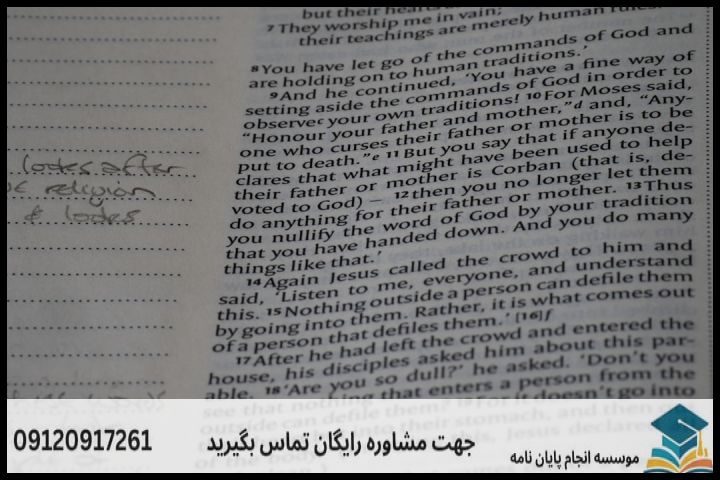 but their hearts
7 They worship me in vain;
their teachings are merely human rules.'
8 You have let go of the commands of God and
are holding on to human traditions.'
9 And he continued, 'You have a fine way of
setting aside the commands of God in order to
observe your own traditions! 10 For Moses said,
"Honour your father and mother,"d and, "Any-
one who curses their father or mother is to be
put to death."e 11 But you say that if anyone de-
clares that what might have been used to help
their father or mother is Corban (that is, de-
voted to God) – 12 then you no longer let them
do anything for their father or mother. 13 Thus
you nullify the word of God by your tradition
that you have handed down. And you do many
things like that.'
14 Again Jesus called the crowd to him and
said, 'Listen to me, everyone, and understand
this. 15 Nothing outside a person can defile them
by going into them. Rather, it is what comes out
of a person that defiles them.' [16]f
17 After he had left the crowd and entered the
house, his disciples asked him about this par-
able. 18 'Are you so dull?' he asked. 'Don't you
see that nothing that enters a person from the
outside can defile them? 19 For it doesn't go into
their stomach, and then
this, Jesus declared
of the body.
looks after
religion
& looks
09120917261
جهت مشاوره رایگان تماس بگیرید
موسسه انجام پایان نامه